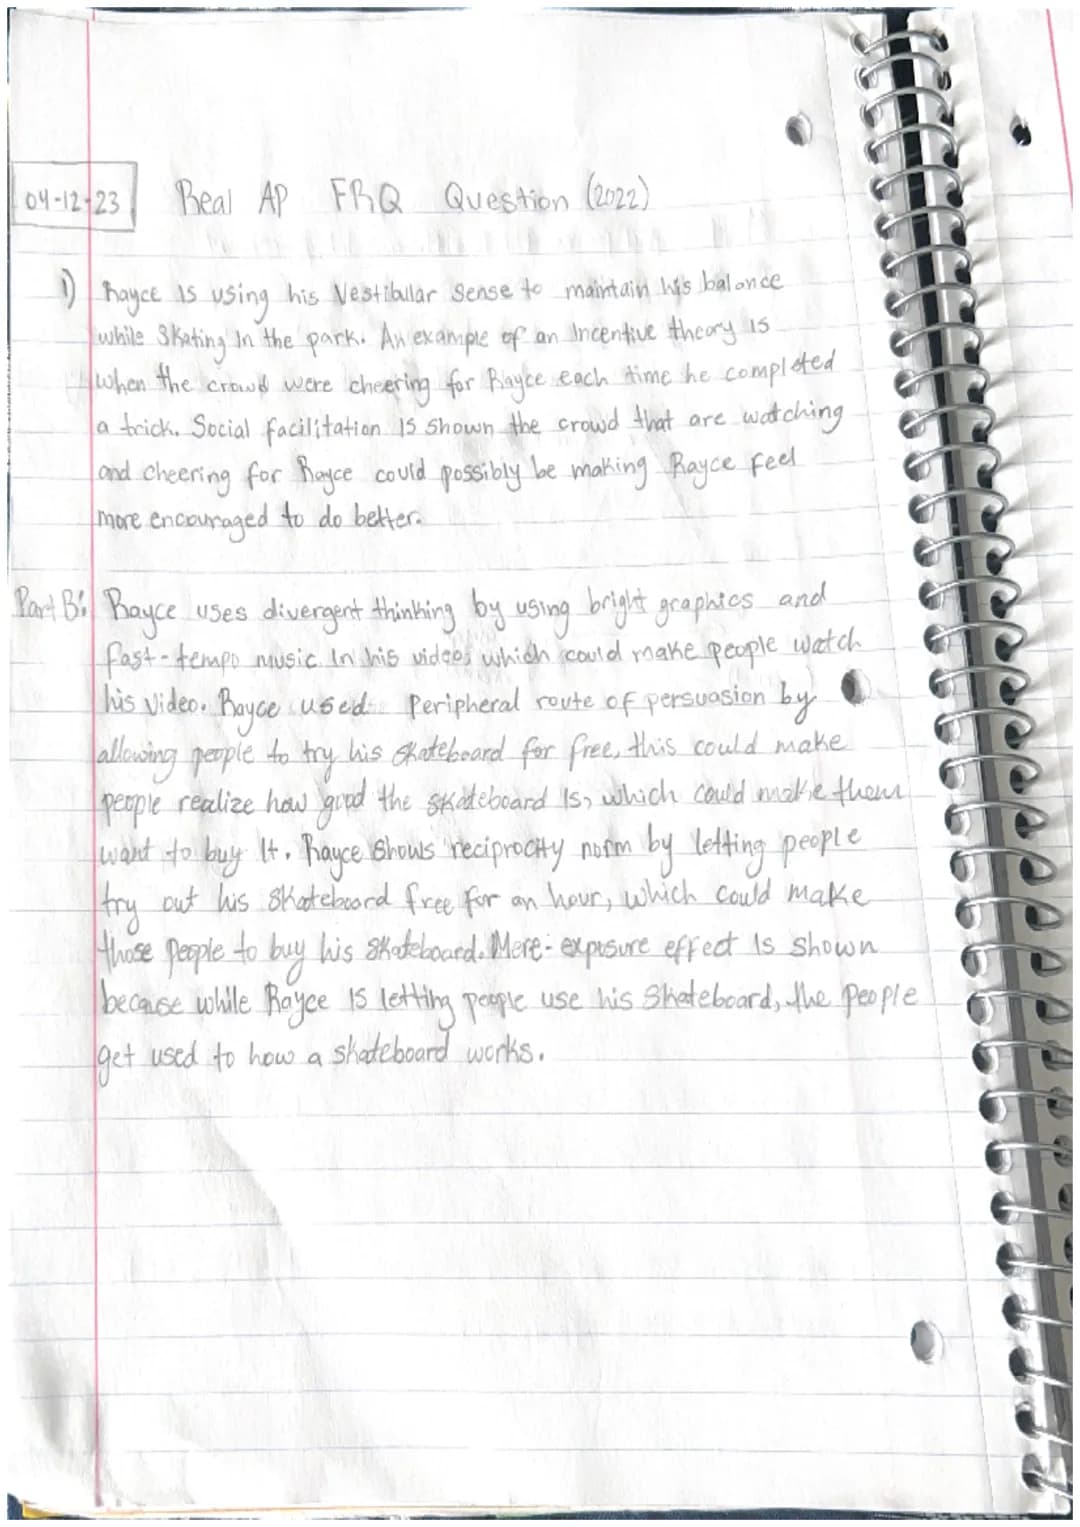 04-12-23 Real AP FRQ Question (2022)
1) Rayce is using his Vestibular Sense to maintain his balance
while Skating in the park. An example of an Incentive theory is
when the crowd were cheering for Rayce each time he completed
a trick. Social facilitation is shown the crowd that are watching
and cheering for Rayce could possibly be making Rayce feel
more encouraged to do better.
Part B: Rayce uses divergent thinking by using bright graphics and
fast-tempo music in his videos which could make people watch
his video. Rayce used Peripheral route of persuasion by
allowing people to try his skateboard for free, this could make
people realize how good the skateboard is, which could make them
want to buy it. Rayce shows reciprocity norm by letting people
try out his skateboard free for an hour, which could make
those people to buy his skateboard. Mere-exposure effect is shown
because while Rayce is letting people use his skateboard, the people
get used to how a skateboard works.